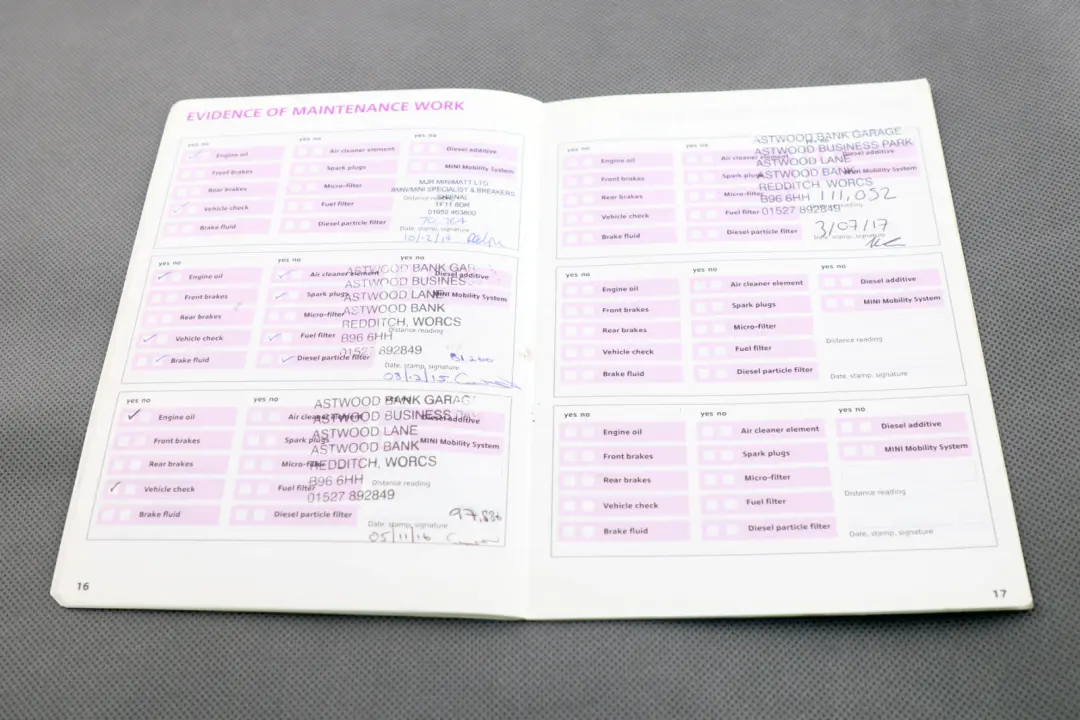 EVIDENCE OF MAINTENANCE WORK
yes no
yes no
yes no
Engine oil
Air cleaner element
Diesel additive
Front brakes
Spark plugs
MINI Mobility System
Rear brakes
Micro-filter
MJR MINIMATT LTD
BMW/MINI SPECIALIST & BREAKERS
SHIFNAL
TF11 8DR
01952 463800
Distance reading
Vehicle check
Fuel filter
70,764
Brake fluid
Diesel particle filter
Date, stamp, signature
10/12/14
yes no
yes no
yes no
Engine oil
Air cleaner element
Diesel additive
Front brakes
Spark plugs
MINI Mobility System
Rear brakes
Micro-filter
Distance reading
Vehicle check
Fuel filter
Brake fluid
Diesel particle filter
Date, stamp, signature
ASTWOOD BANK GARAGE
ASTWOOD BUSINESS
ASTWOOD LANE
ASTWOOD BANK
REDDITCH, WORCS
B96 6HH
01527 892849
03/12/15
yes no
yes no
Engine oil
Air cleaner element
Diesel additive
Front brakes
Spark plugs
MINI Mobility System
Rear brakes
Micro-filter
Distance reading
Vehicle check
Fuel filter
Brake fluid
Diesel particle filter
Date, stamp, signature
ASTWOOD BANK GARAG
ASTWOOD BUSINESS
ASTWOOD LANE
ASTWOOD BANK
REDDITCH, WORCS
B96 6HH
01527 892849
05/11/16
16
yes no
yes no
yes no
Engine oil
Air cleaner element
Diesel additive
Front brakes
Spark plugs
MINI Mobility System
Rear brakes
Micro-filter
Distance reading
Vehicle check
Fuel filter
Brake fluid
Diesel particle filter
Date, stamp, signature
ASTWOOD BANK GARAGE
ASTWOOD BUSINESS PARK
ASTWOOD LANE
ASTWOOD BANK
REDDITCH, WORCS
B96 6HH
01527 892849
111,052
3/07/17
yes no
yes no
yes no
Engine oil
Air cleaner element
Diesel additive
Front brakes
Spark plugs
MINI Mobility System
Rear brakes
Micro-filter
Distance reading
Vehicle check
Fuel filter
Brake fluid
Diesel particle filter
Date, stamp, signature
yes no
yes no
yes no
Engine oil
Air cleaner element
Diesel additive
Front brakes
Spark plugs
MINI Mobility System
Rear brakes
Micro-filter
Distance reading
Vehicle check
Fuel filter
Brake fluid
Diesel particle filter
Date, stamp, signature
17